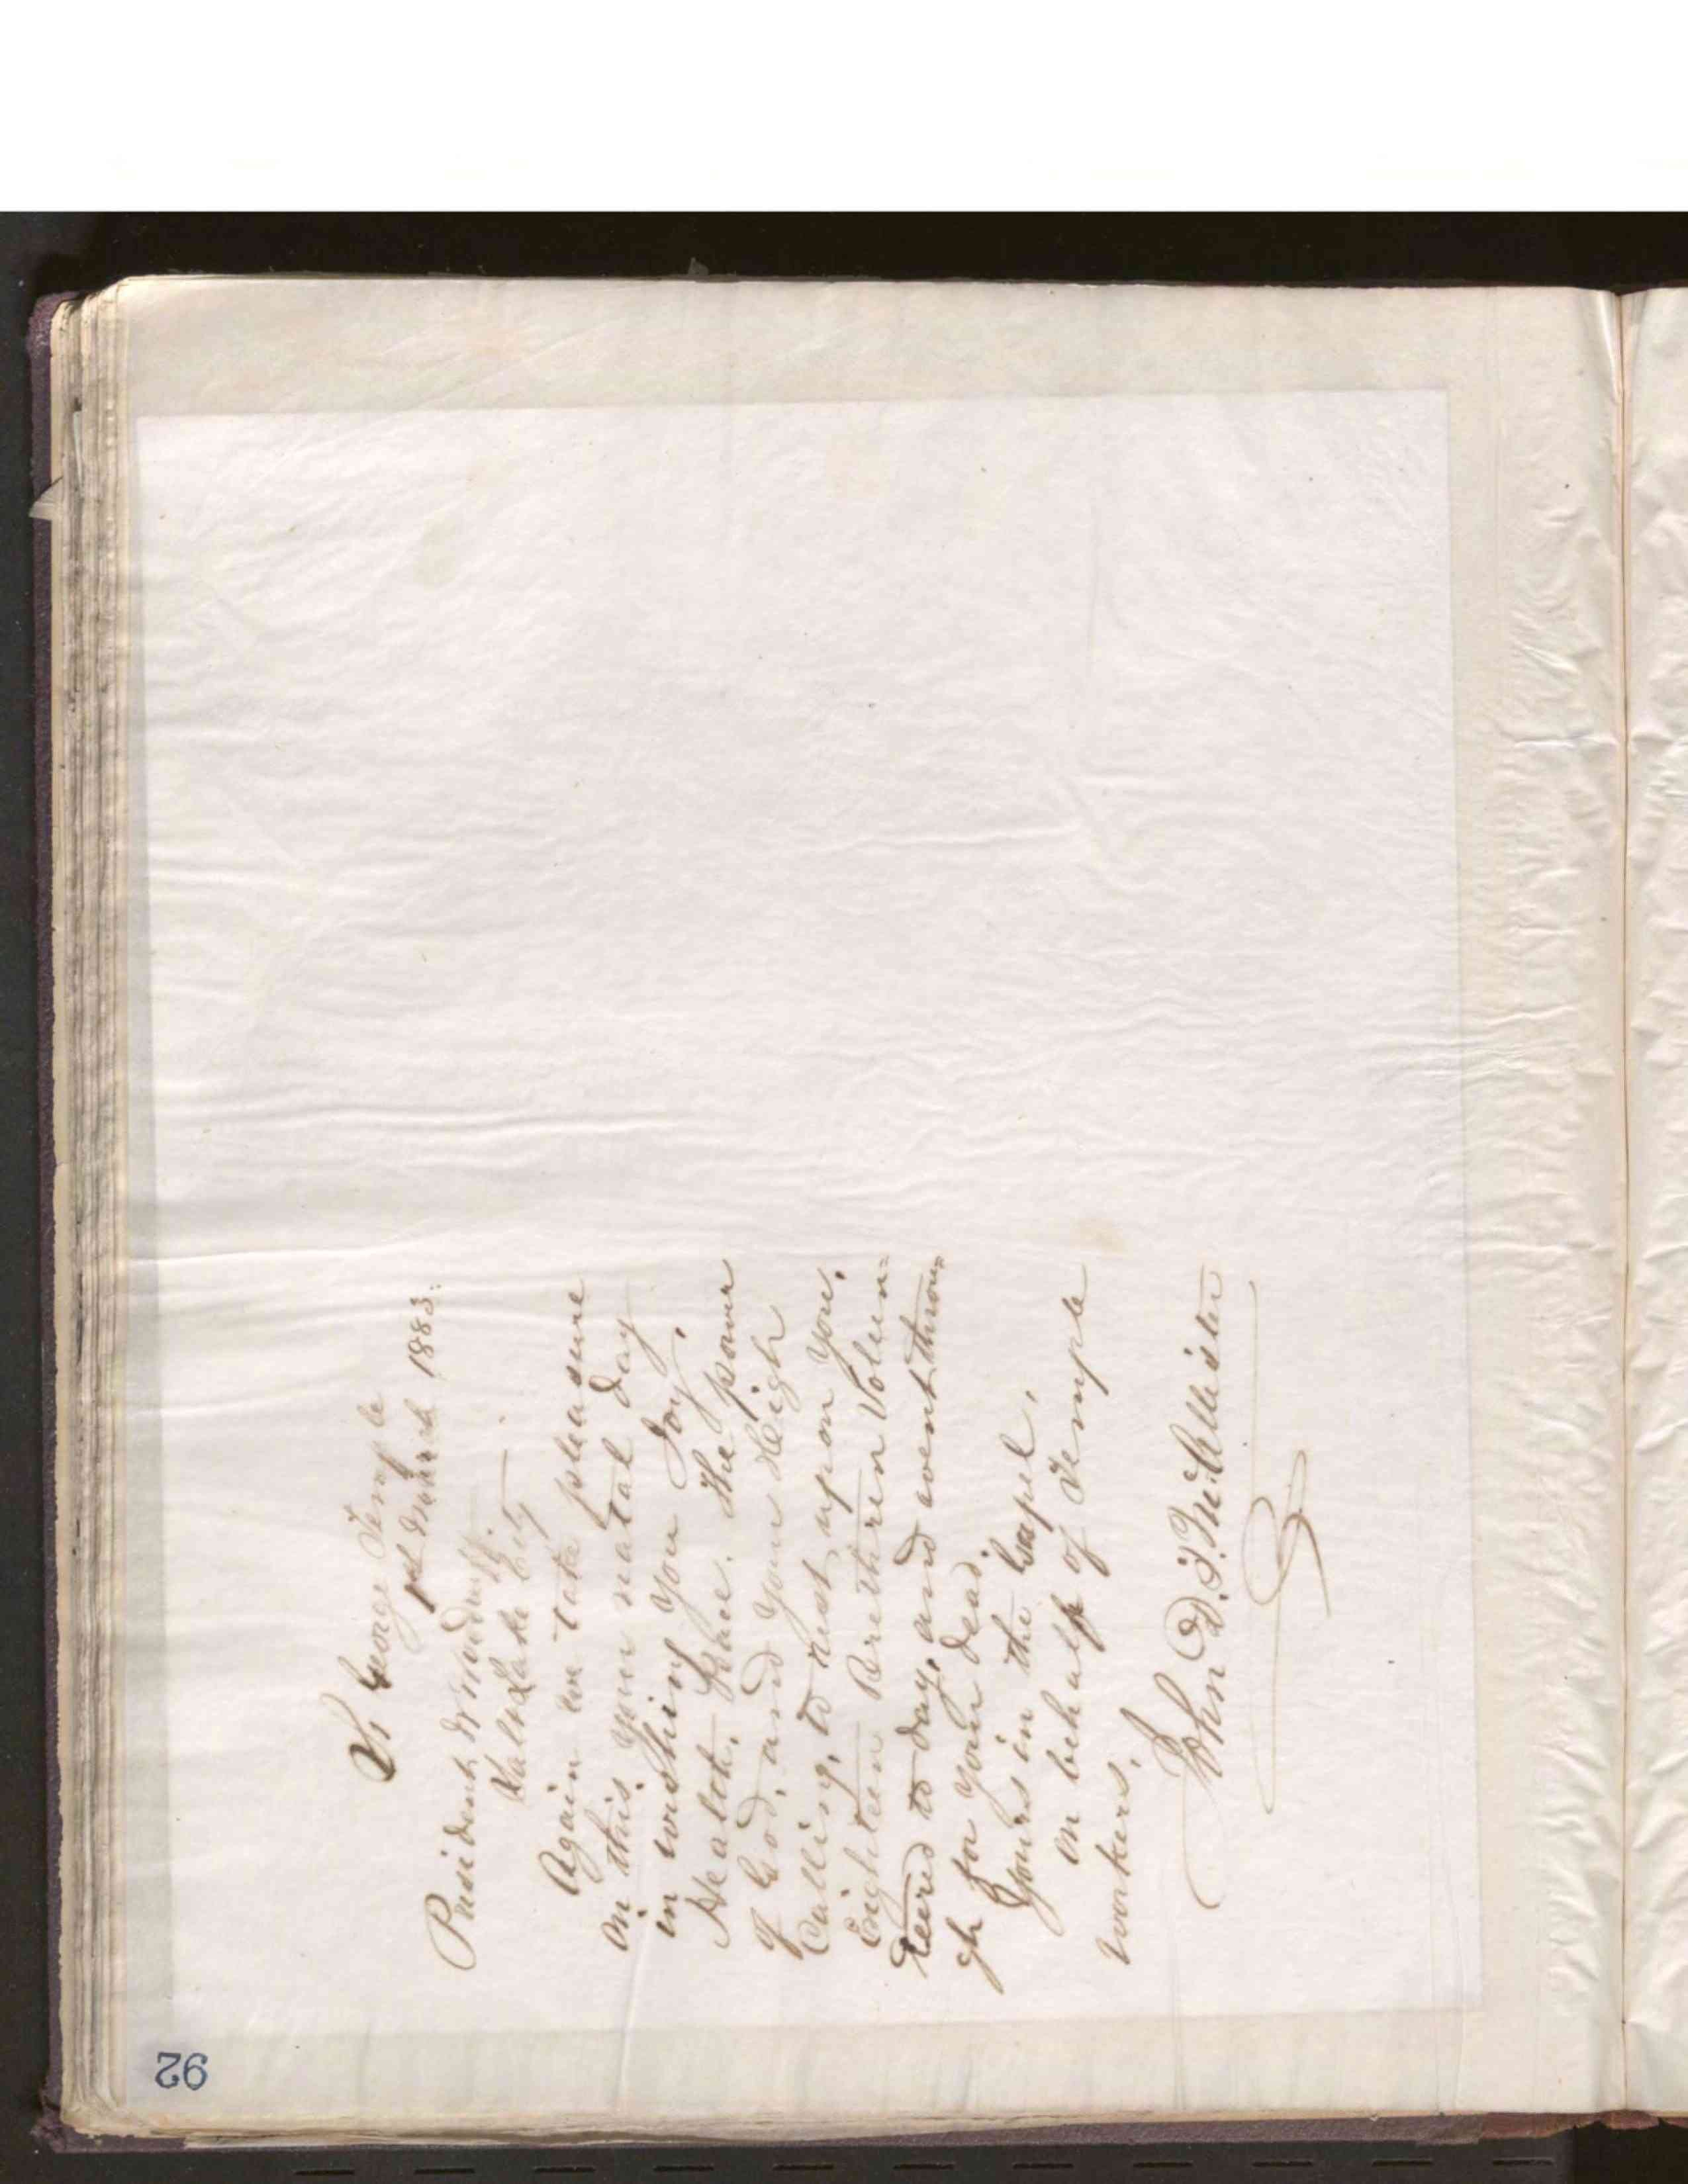 92
St George Temple
1st March 1883:
President W Woodruff.
Salt Lake City
Again we take pleasure
on this your natal day
in wishing you Joy,
Health, Peace. The power
of God, and your High
Calling, to rest upon you.
Eighteen Brethren Volun=
teered to day, and went throu=
gh for your dead.
Yours in the Gospel,
on behalf of Temple
workers,
John D. T. McAllister